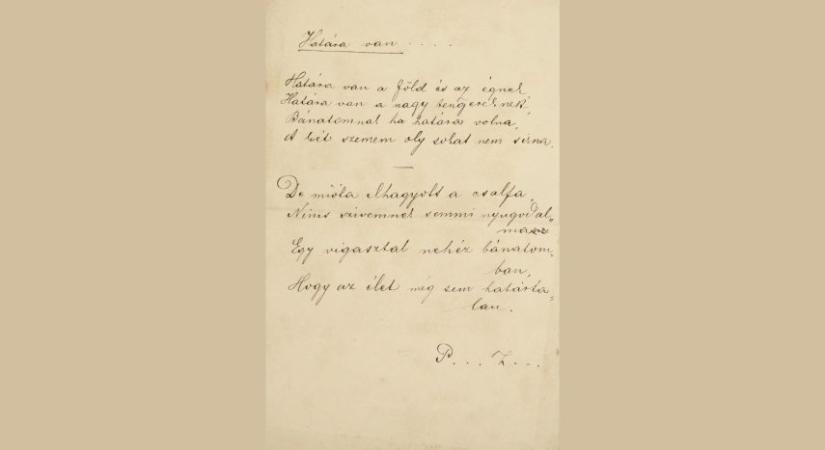 Határa van . . . .
Határa van a föld és az égnek,
Határa van a nagy tengereknek,
Bánatomnak ha határa volna,
A két szemem oly sokat nem sírna.
De mióta elhagyott a csalfa,
Nincs szivemnek semmi nyugodal„
masa
Egy vigasztal nehéz bánatom„
ban,
Hogy az élet még sem határta„
lan.
P . . . Z . . .